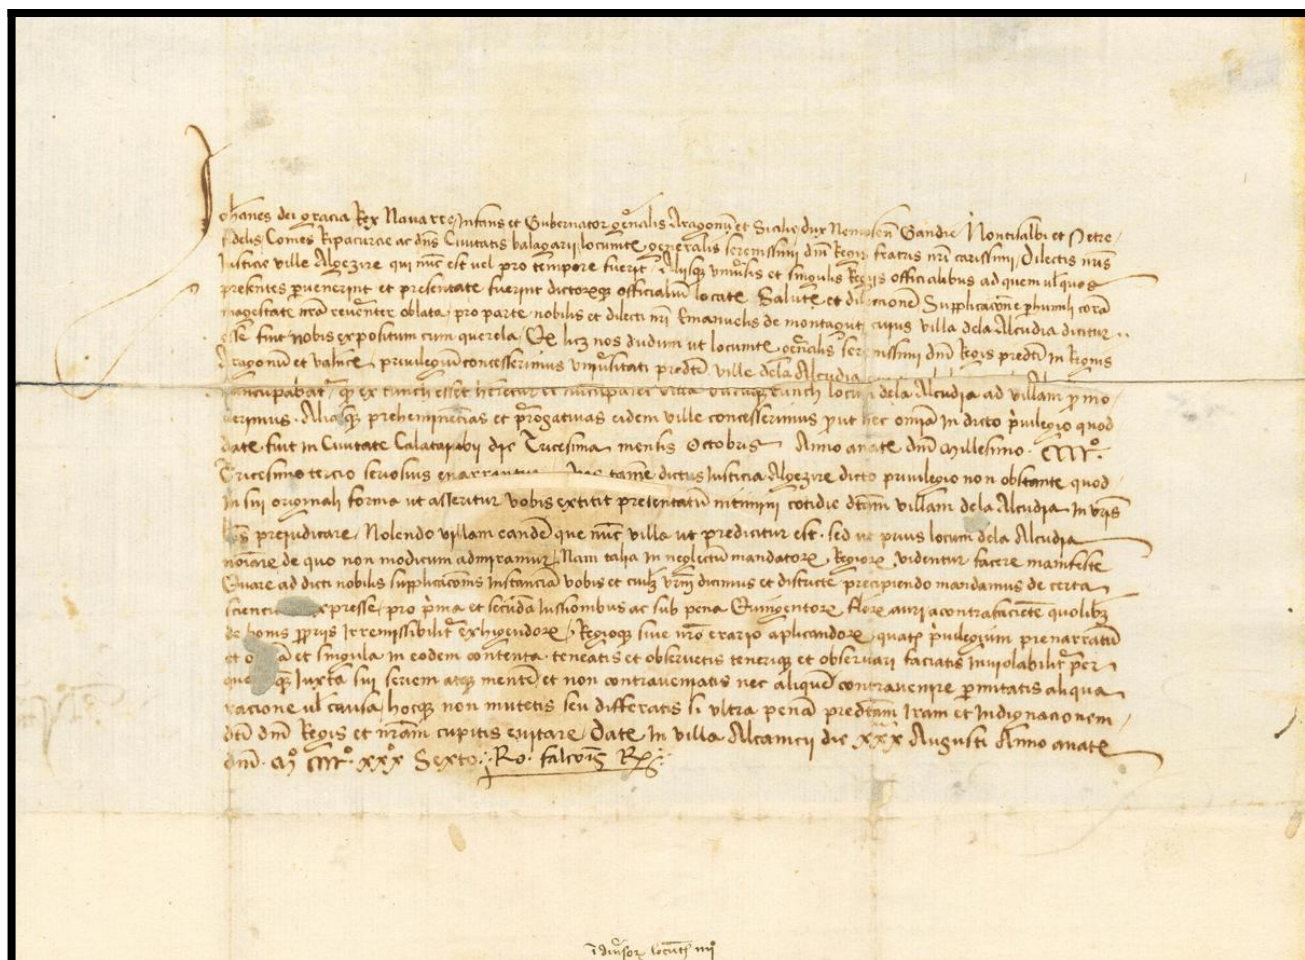 Johanes dei gracia Rex Navarre Infans et Gubernator gñalis Aragonũ et Sicilie dux Nemosen̄ Gandie Montisalbi et Petre
fidelis Comes Ripacurcie ac dñs Civitatis balagarij locumtẽ generalis serenissimi dñi Regis fratris nr̃i carissimi Dilectis nr̃is
Justicie ville Algezire qui nũc est vel pro tempore fuerit Aliisqz univ̾sis et singulis Regijs officialibus ad quem ul̃ quos
presentes p̱venerint et presentate fuerint dictorũqz officialiũ locatẽ Salutẽ et dileccionẽ Supplicaciõne p̱humili corã
magestate nr̃a rev̾enter oblata pro parte nobilis et dilecti nr̃i Emanuelis de montagut cujus villa dela Alcudia dicitur
esse fuit nobis expositum cum querela Qd̾ licz nos dudum ut locumtẽ gñalis serenissimi dñi Regis predc̃i in Regnis
Aragonũ et valncie privilegiũ concesserimus univ̾sitati predc̃e ville dela Alcudia
nuncupabat̾ qz ex ranch esset loci dela Alcudia ad villam p̱mo
verimus Aliasqz preheminẽcias et p̾rogativas eidem ville concesserimus p̱ut hec om̃ia in dicto p̾vilegio quod
date fuit in Civitate Calatajubij die Tricesima mensis Octobris Anno a nate dñi Millesimo CCCCº
Tricesimo tercio seriosius enarrantur tamẽ dictus Justicia Algezire dicto privilegio non obstante quod
in sui originali forma ut asseritur vobis extitit presentatũ nitimini cotidie dc̃am villam dela Alcudia in vr̃is
prejudicare Nolendo villam eandẽ que nũc villa ut predicitur est sed ut prius locum dela Alcudia
noiare de quo non modicum admiramur Nam talia in neglectũ mandatorꝝ Regiorꝝ videntur facere manifeste
Quare ad dicti nobilis supplicacionis instanciã vobis et cuilz vr̃m dicimus et districte precipiendo mandamus de certa
sciencia expresse pro p̾ma et secũda jussionibus ac sub pena Quingentorꝝ florꝝ auri a contrafaciẽte quolibz
de bonis p̱prijs irremissibilit̾ exhigendorꝝ Regioqz sive nr̃o erario aplicandorꝝ quatꝫ p̾vilegium prenarratũ
et et singula in eodem contenta teneatis et observetis tenerique et observari faciatis inviolabilit̾ p̱er
juxta sui seriem atqz mentẽ et non contraveniatis nec aliquẽ contravenire p̱mitatis aliqua
racione ul̃ causa hocqz non mutetis seu differatis si ultra penã predc̃am iram et indignacionem
dc̃i dñi Regis et nr̃am cupitis evitare Date in villa Alcanicij die xxx Augusti Anno a nate
dñi Mº CCCCº xxxº Sexto Ro. falconis Rx̃
ĩ div̾sorꝝ locũtñ iiijº